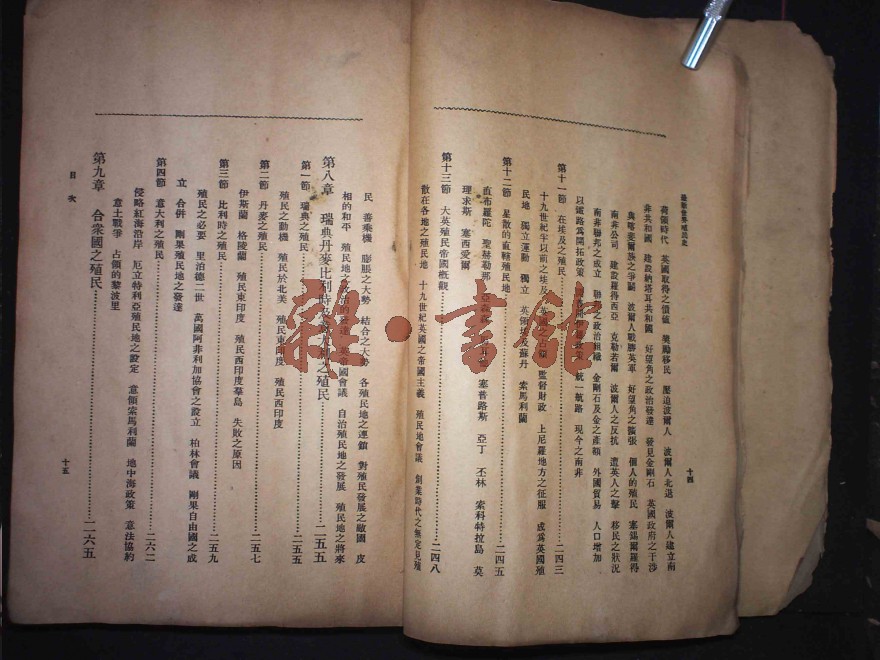 最新世界殖民史
荷領時代　英國取得之價值　獎勵移民　壓迫波爾人　波爾人北退　波爾人建立南
非共和國　建設納塔耳共和國　好望角之政治發達　發見金剛石　英國政府之干涉
與喀斐爾族之爭鬭　波爾人戰勝英軍　好望角之擴張　個人的殖民　塞錫爾羅得
南非公司　建設羅得西亞　克勒若爾　波爾人之反抗　遭英人之擊　移民之狀況
南非聯邦之成立　聯邦之政治組織　金剛石及金之產額　外國貿易　人口增加
以鐵路爲開拓政策　統一航路　現今之南非
第十一節　在埃及之殖民 二四三
十九世紀半以前之埃及　監督財政　上尼羅地方之征服　成爲英國殖
民地　獨立運動　獨立　英領埃及蘇丹　索馬利蘭
第十二節　星散的直轄殖民地 二四五
直布羅陀　聖赫勒那　亞森　塞普路斯　亞丁　丕林　索科特拉島　莫
理求斯　塞西愛爾
第十三節　大英殖民帝國概觀 二四八
散在各地之殖民地　十九世紀英國之帝國主義　殖民地會議　創業時代之無定見殖
十四
民　善乘機　膨脹之大勢　結合之大勢　各殖民地之連鎖　對殖民發展之敵國　皮
相的和平　殖民地之政治的發達　英帝國會議　自治殖民地之發展　殖民地之將來
第八章　瑞典丹麥比利時及意大利之殖民 二五五
第一節　瑞典之殖民 二五五
殖民之動機　殖民於北美　殖民東印度　殖民西印度
第二節　丹麥之殖民 二五七
伊斯蘭　格陵蘭　殖民東印度　殖民西印度羣島　失敗之原因
第三節　比利時之殖民 二五九
殖民之必要　里泊德二世　萬國阿非利加協會之設立　柏林會議　剛果自由國之成
立　合併　剛果殖民地之發達
第四節　意大利之殖民 二六二
侵略紅海沿岸　厄立特利亞殖民地之設定　意領索馬利蘭　地中海政策　意法協約
意土戰爭　占領的黎波里
第九章　合衆國之殖民 二六五
目次
十五
雜·書館